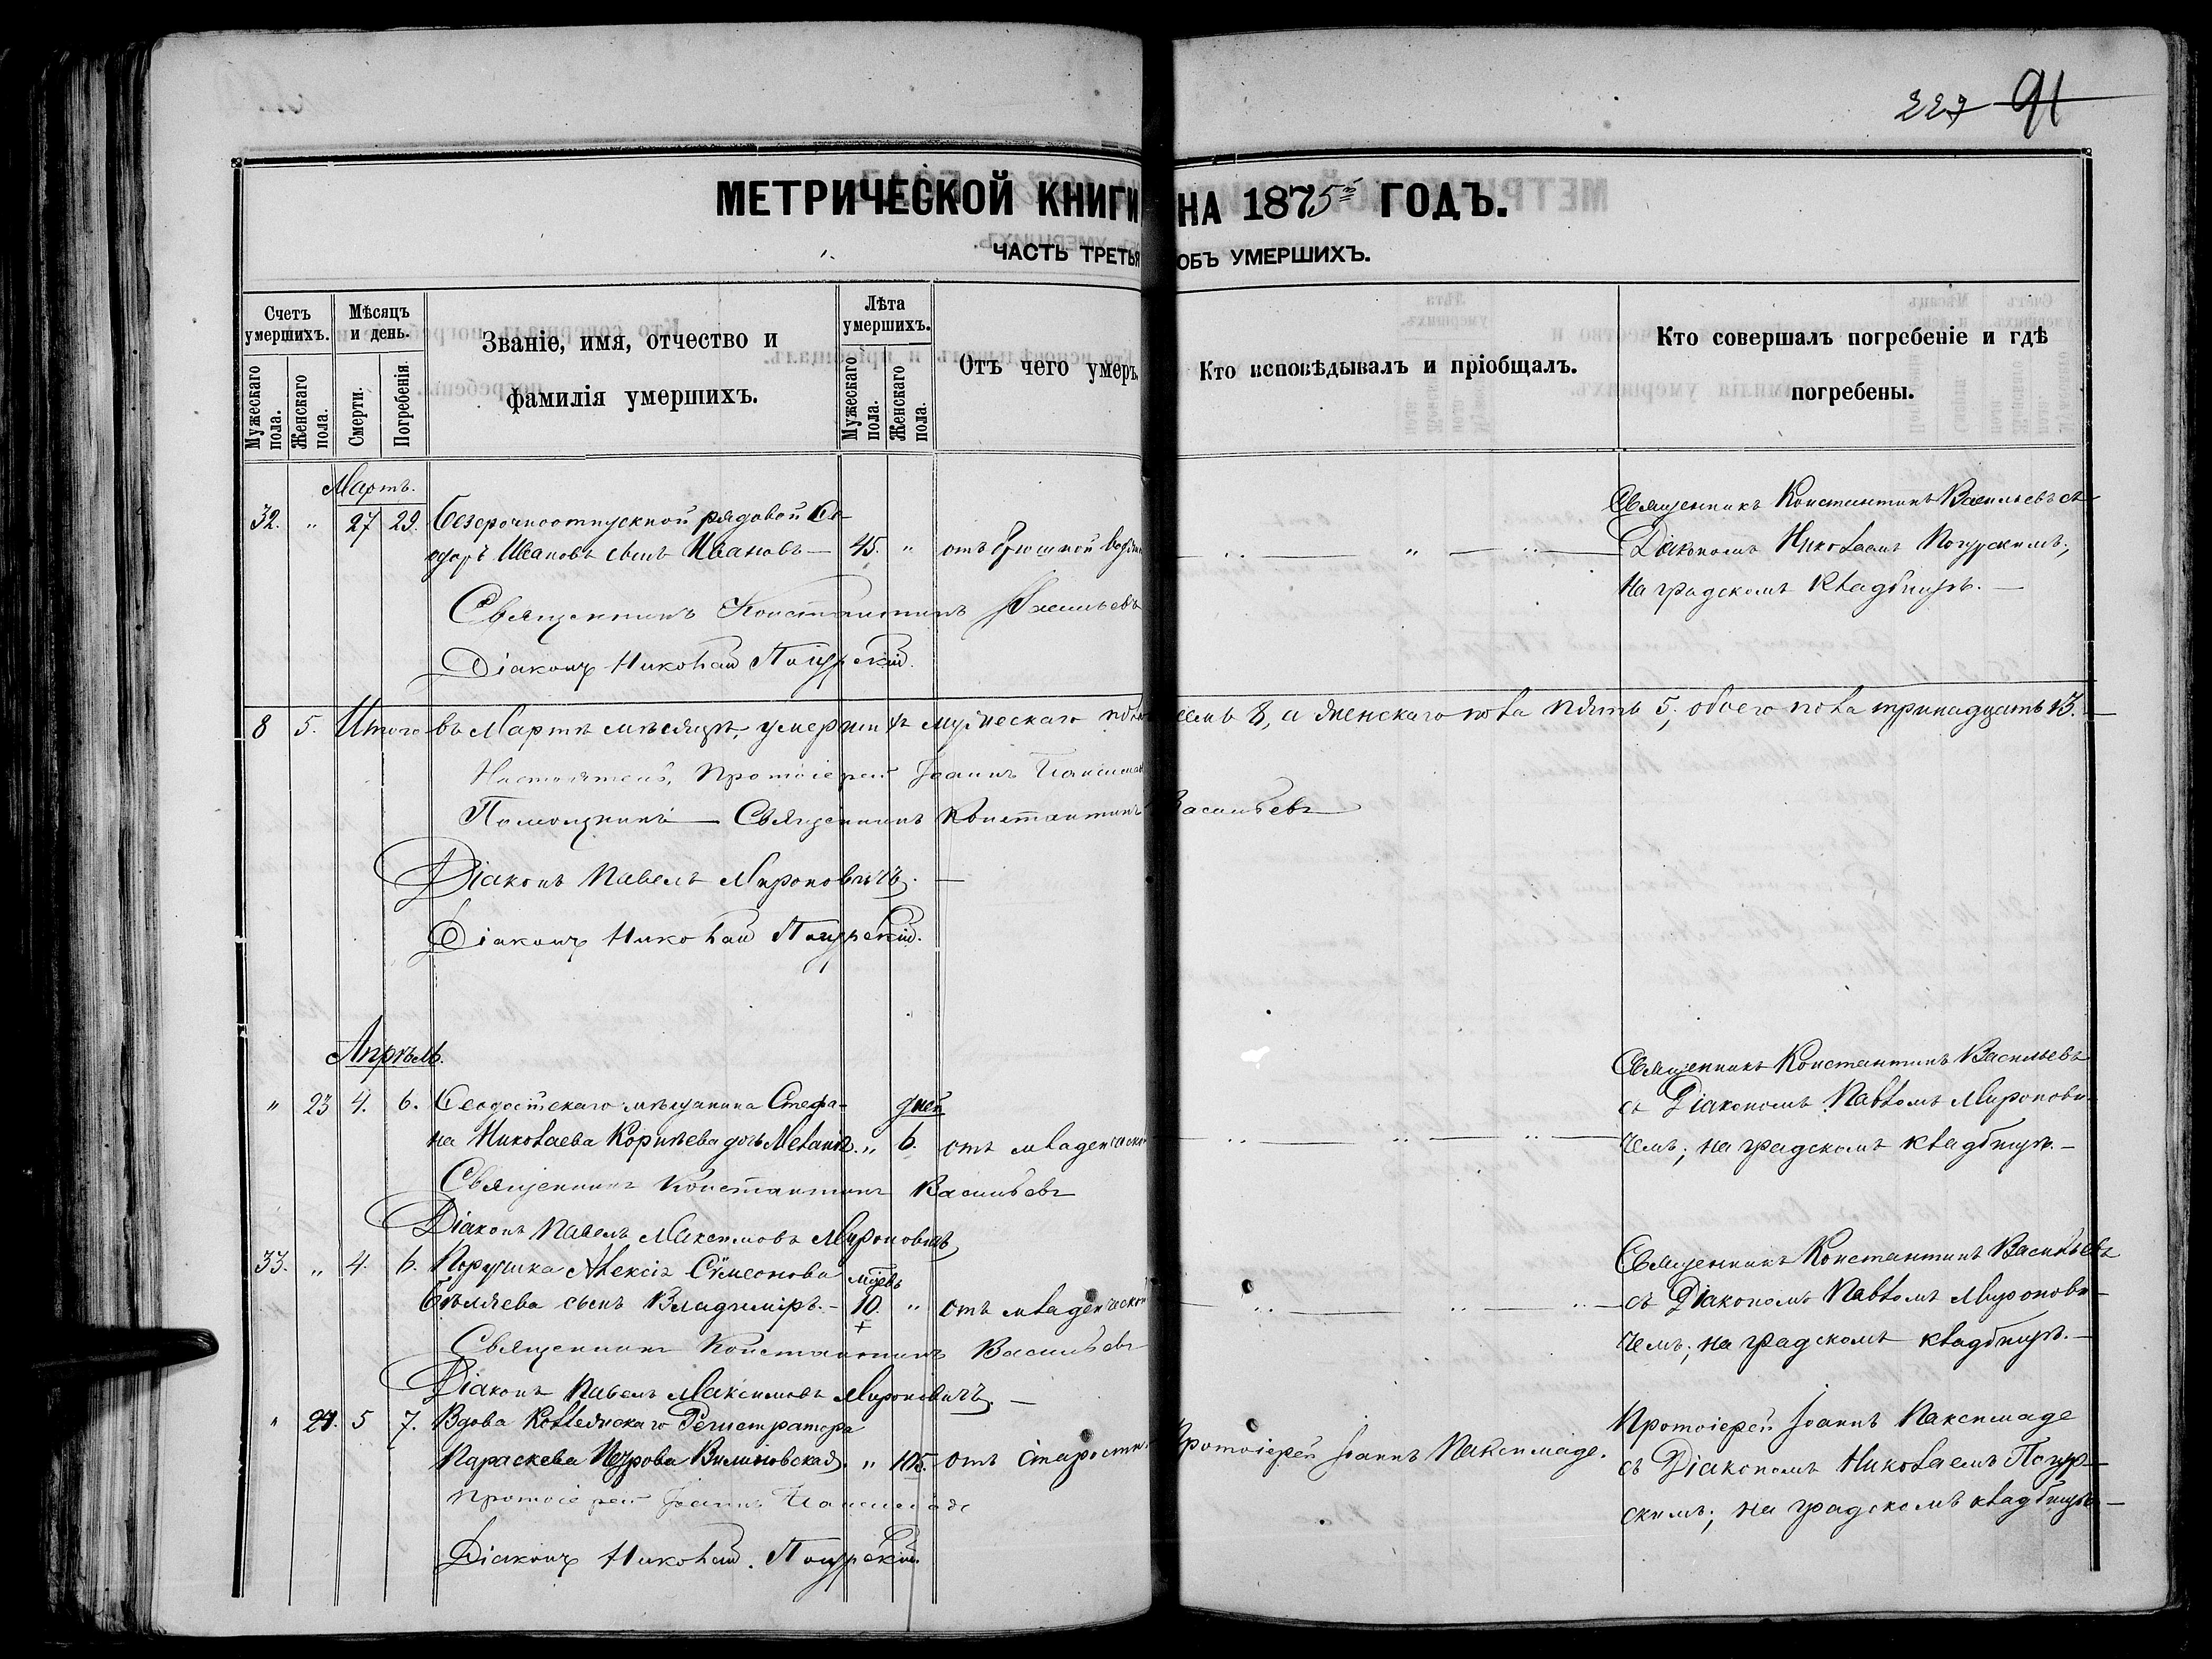 227 91
МЕТРИЧЕСКОЙ КНИГИ НА 1875й ГОДЪ.
ЧАСТЬ ТРЕТЬЯ ОБЪ УМЕРШИХЪ.
Счетъ умершихъ.
Мужескаго пола.
Женскаго пола.
Мѣсяцъ и день.
Смерти.
Погребенія.
Званіе, имя, отчество и
фамилія умершихъ.
Лѣта умершихъ.
Мужескаго пола.
Женскаго пола.
Отъ чего умеръ.
Кто исповѣдывалъ и пріобщалъ.
Кто совершалъ погребеніе и гдѣ
погребены.
Мартъ.
32. " 27 29. Безсрочноотпускной рядовой
Ивановъ сынъ Ивановъ — 45. " отъ брюшной
Священникъ Константинъ Васильевъ съ
Діакономъ Николаемъ Погурскимъ;
на градскомъ кладбищѣ. —
Священникъ Константинъ Васильевъ
Діаконъ Николай Погурскій.
8 5. Итого въ Мартѣ мѣсяцѣ умершихъ мужескаго пола восемь 8, а женскаго пола пять 5; обоего пола тринадцать 13. —
Настоятель, Протоіерей Іоаннъ
Помощникъ — Священникъ Константинъ Васильевъ
Діаконъ Павелъ Мироновичъ. —
Діаконъ Николай Погурскій.
Апрѣль.
" 23 4. 6. Ѳеодосійскаго мѣщанина Стефа-
на Николаева Корнѣева дочь Меланія. " дней 6. отъ младенческой
Священникъ Константинъ Васильевъ
съ Діакономъ Павломъ Миронови-
чемъ; на градскомъ кладбищѣ. —
Священникъ Константинъ Васильевъ
Діаконъ Павелъ Максимовъ Мироновичъ
33. " 4. 6. Поручика Алексія Сѵмеонова
Бѣляева сынъ Владиміръ. — мѣсяцевъ 10. " отъ младенческой
Священникъ Константинъ Васильевъ
съ Діакономъ Павломъ Миронови-
чемъ; на градскомъ кладбищѣ. —
Священникъ Константинъ Васильевъ
Діаконъ Павелъ Максимовъ Мироновичъ. —
" 24. 5 7. Вдова Коллежскаго Регистратора
Параскева Петрова " 105. отъ старости Протоіерей Іоаннъ Паксимаде.
Протоіерей Іоаннъ Паксимаде
съ Діакономъ Николаемъ Погур-
скимъ; на градскомъ кладбищѣ —
Протоіерей Іоаннъ Паксимаде
Діаконъ Николай Погурскій.